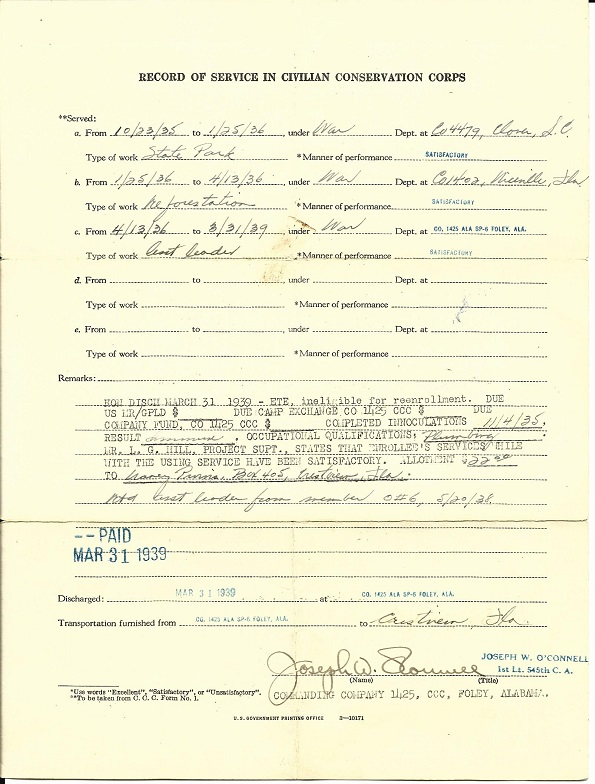 RECORD OF SERVICE IN CIVILIAN CONSERVATION CORPS
**Served:
a. From 10/23/35 to 1/25/36, under War Dept. at Co 4479, Clover, S.C.
Type of work State Park *Manner of performance SATISFACTORY
b. From 1/25/36 to 4/13/36, under War Dept. at Co 1402, Niceville, Fla
Type of work Reforestation *Manner of performance SATISFACTORY
c. From 4/13/36 to 3/31/39, under War Dept. at CO. 1425 ALA SP-6 FOLEY, ALA.
Type of work Asst leader *Manner of performance SATISFACTORY
d. From to , under Dept. at
Type of work *Manner of performance
e. From to , under Dept. at
Type of work *Manner of performance
Remarks:
HON DISCH MARCH 31 1939 - ETE, ineligible for reenrollment. DUE
US MR/GPLD $ DUE CAMP EXCHANGE CO 1425 CCC $ DUE
COMPANY FUND, CO 1425 CCC $ COMPLETED INNOCULATIONS 11/4/35,
RESULT immune. OCCUPATIONAL QUALIFICATIONS; Plumbing.
MR. L. G. HILL, PROJECT SUPT., STATES THAT ENROLLEE'S SERVICES WHILE
WITH THE USING SERVICE HAVE BEEN SATISFACTORY. ALLOTMENT $22.00
TO Box 405, Crestview, Fla.
Rtd asst leader from member O#6, 5/20/38.
--PAID
MAR 31 1939
Discharged: MAR 31 1939 at CO. 1425 ALA SP-6 FOLEY, ALA.
Transportation furnished from CO. 1425 ALA SP-6 FOLEY, ALA. to Crestview, Fla.
JOSEPH W. O'CONNELL
Joseph W. O'Connell 1st Lt. 545th C. A.
(Name) (Title)
*Use words "Excellent", "Satisfactory", or "Unsatisfactory".
**To be taken from C. C. C. Form No. 1.
COMMANDING COMPANY 1425, CCC, FOLEY, ALABAMA.
U. S. GOVERNMENT PRINTING OFFICE 3—10171